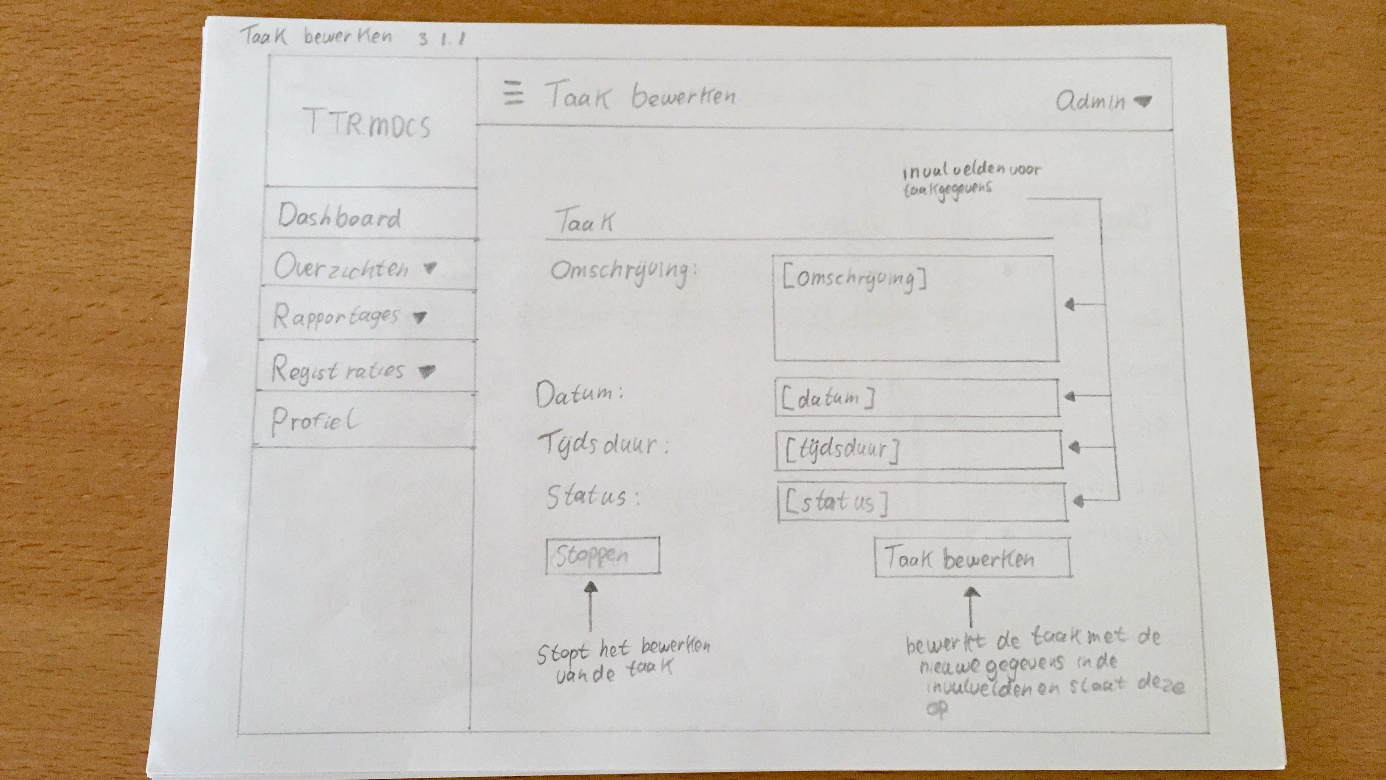 Taak bewerken 3.1.1
TTRMDCS
Taak bewerken
Admin
Dashboard
Overzichten
Rapportages
Registraties
Profiel
invulvelden voor
taakgegevens
Taak
Omschrijving:
[omschrijving]
Datum:
[datum]
Tijdsduur:
[tijdsduur]
Status:
[status]
Stoppen
Taak bewerken
Stopt het bewerken
van de taak
bewerkt de taak met de
nieuwe gegevens in de
invulvelden en slaat deze
op